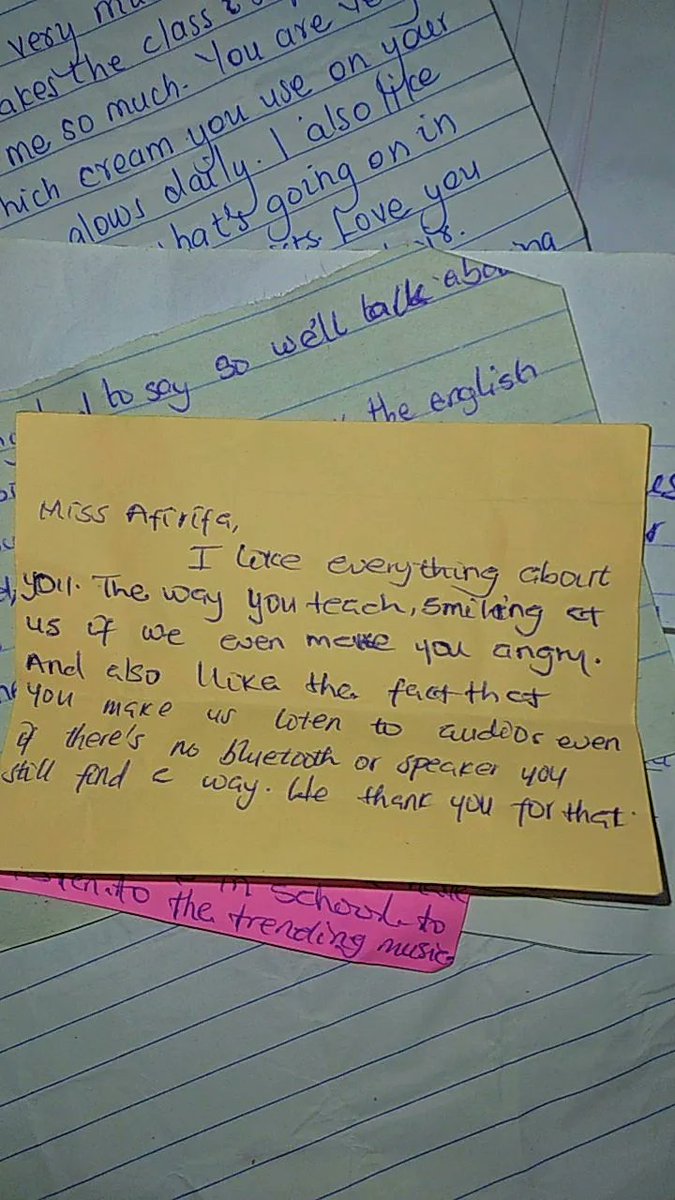 very mu
akes the class
me so much. You are ve
hich cream you use on your
alows daily. I also like
hat's going on in
Love you
to say so we'll talk abo
the english
Miss Afirifa,
I like everything about
you. The way you teach, smiling at
us if we even make you angry.
And also I like the fact that
you make us listen to audios even
if there's no bluetooth or speaker you
still find a way. We thank you for that.
in school to
to the trending music